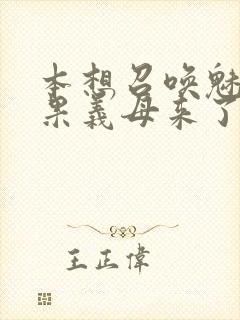 本想召唤魅
果義母来了
王正偉